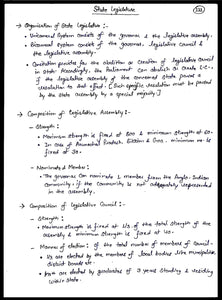 State Legislature
→ Organisation of State Legislature :-
• Unicameral System consists of the governor & the legislative assembly.
• Bicameral System consists of the governor, legislative council & the legislative assembly.
• Constitution provides for the abolition or creation of legislative council
in state. Accordingly, the Parliament can abolish or create L.C. if
the legislative assembly of the concerned state passes a
resolution to that effect. [Such specific resolution must be passed by
the state assembly by a special majority]
→ Composition of Legislative Assembly :-
- Strength :
• Maximum strength is fixed at 500 & minimum strength at 60.
• In case of Arunachal Pradesh, Sikkim & Goa, minimum no. is
fixed at 30.
- Nominated Member :
• The governor can nominate 1 member from the Anglo-Indian
Community, if the community is not adequately represented
in the assembly.
→ Composition of Legislative Council :-
- Strength :
• Maximum strength is fixed at 1/3 of the total strength of the
assembly & minimum strength is fixed at 40.
- Manner of election : Of the total number of members of council -
• 1/3 are elected by the members of local bodies like municipalities,
district boards etc.
• 1/12 are elected by graduates of 3 years standing & residing
within State.